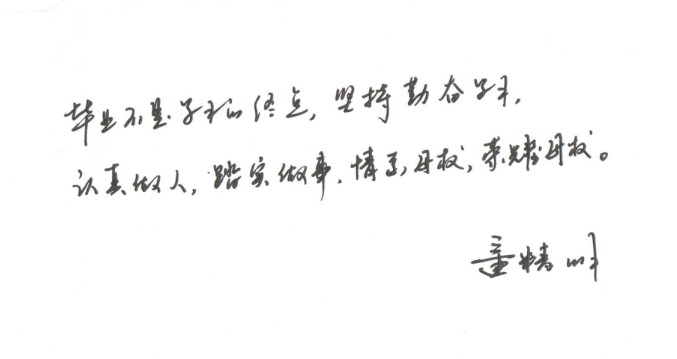 毕业不是学习的终点，坚持勤奋学习，
认真做人，踏实做事，情系母校，荣耀母校。